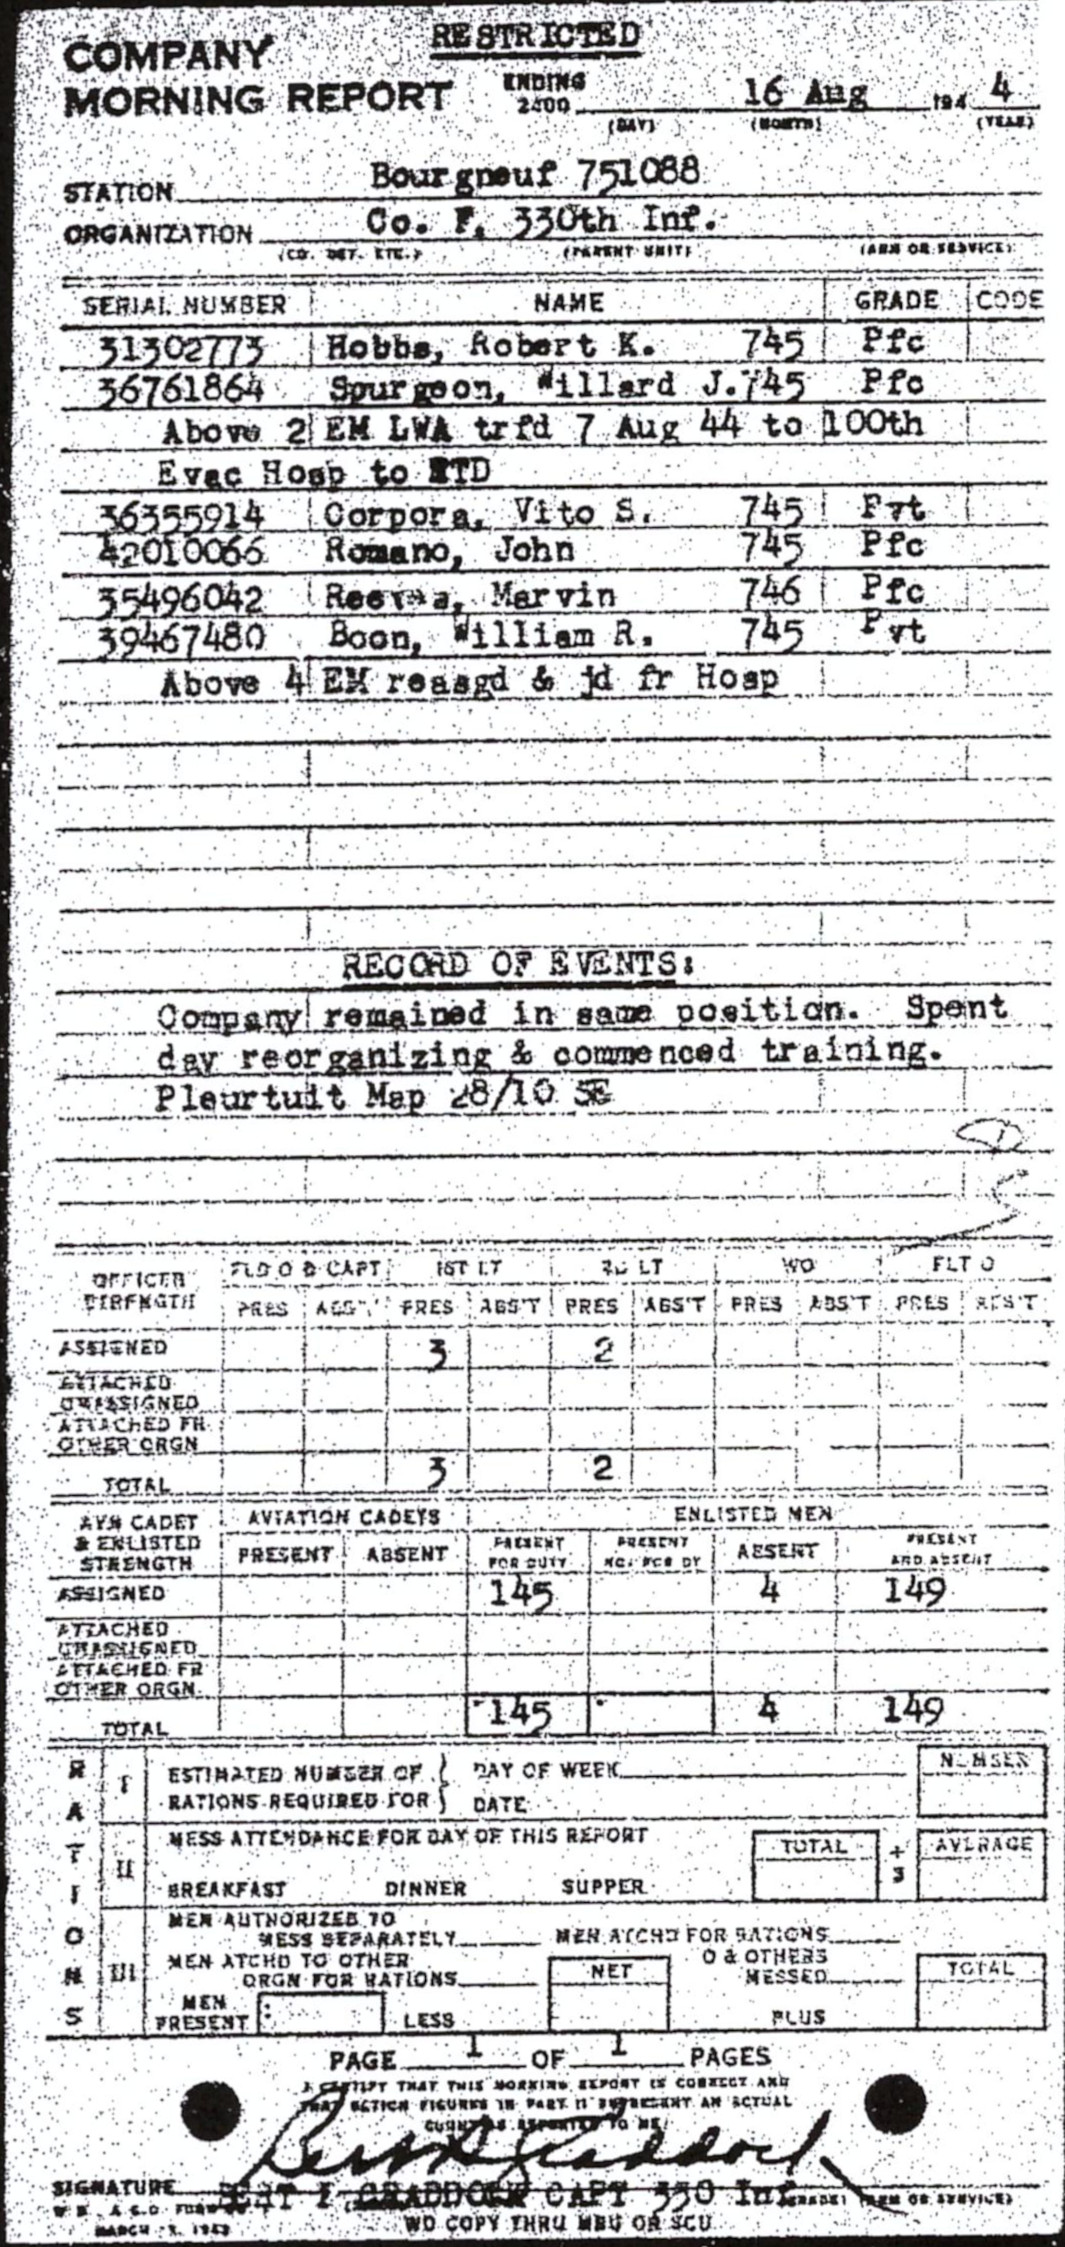 RESTRICTED
COMPANY
MORNING REPORT ENDING 2400 16 Aug 194 4
(DAY) (MONTH) (YEAR)
STATION Bourgneuf 751088
ORGANIZATION Co. F, 330th Inf.
(CO. DET. ETC.) (PARENT UNIT) (ARM OR SERVICE)
SERIAL NUMBER NAME GRADE CODE
31302773 Hobbs, Robert K. 745 Pfc
36761864 Spurgeon, Willard J. 745 Pfc
Above 2 EM LWA trfd 7 Aug 44 to 100th
Evac Hosp to ETD
36355914 Corpora, Vito S. 745 Pvt
42010066 Romano, John 745 Pfc
35496042 Reeves, Marvin 746 Pfc
39467480 Boon, William R. 745 Pvt
Above 4 EM reasgd & jd fr Hosp
RECORD OF EVENTS:
Company remained in same position. Spent
day reorganizing & commenced training.
Pleurtuit Map 28/10 SE
OFFICER STRENGTH FLD O & CAPT 1ST LT 2D LT WO FLT O
PRES ABS'T PRES ABS'T PRES ABS'T PRES ABS'T PRES ABS'T
ASSIGNED 3 2
ATTACHED UNASSIGNED
ATTACHED FR OTHER ORGN
TOTAL 3 2
AVN CADET & ENLISTED STRENGTH AVIATION CADETS ENLISTED MEN
PRESENT ABSENT PRESENT FOR DUTY PRESENT NOT FOR DY ABSENT PRESENT AND ABSENT
ASSIGNED 145 4 149
ATTACHED UNASSIGNED
ATTACHED FR OTHER ORGN.
TOTAL 145 4 149
RATIONS
I ESTIMATED NUMBER OF RATIONS REQUIRED FOR DAY OF WEEK NUMBER
DATE
II MESS ATTENDANCE FOR DAY OF THIS REPORT TOTAL ÷ 3 AVERAGE
BREAKFAST DINNER SUPPER
III MEN AUTHORIZED TO MESS SEPARATELY MEN ATCHD FOR RATIONS
MEN ATCHD TO OTHER ORGN FOR RATIONS NET O & OTHERS MESSED TOTAL
MEN PRESENT LESS PLUS
PAGE 1 OF 1 PAGES
I CERTIFY THAT THIS MORNING REPORT IS CORRECT AND
THAT RATION FIGURES IN PART II REPRESENT AN ACTUAL
COUNT AS REPORTED TO ME
SIGNATURE CRADDOCK CAPT 330 Inf (GRADE) (ARM OR SERVICE)
W. D. A.G.O. FORM
MARCH 1943
WD COPY THRU MRU OR SCU